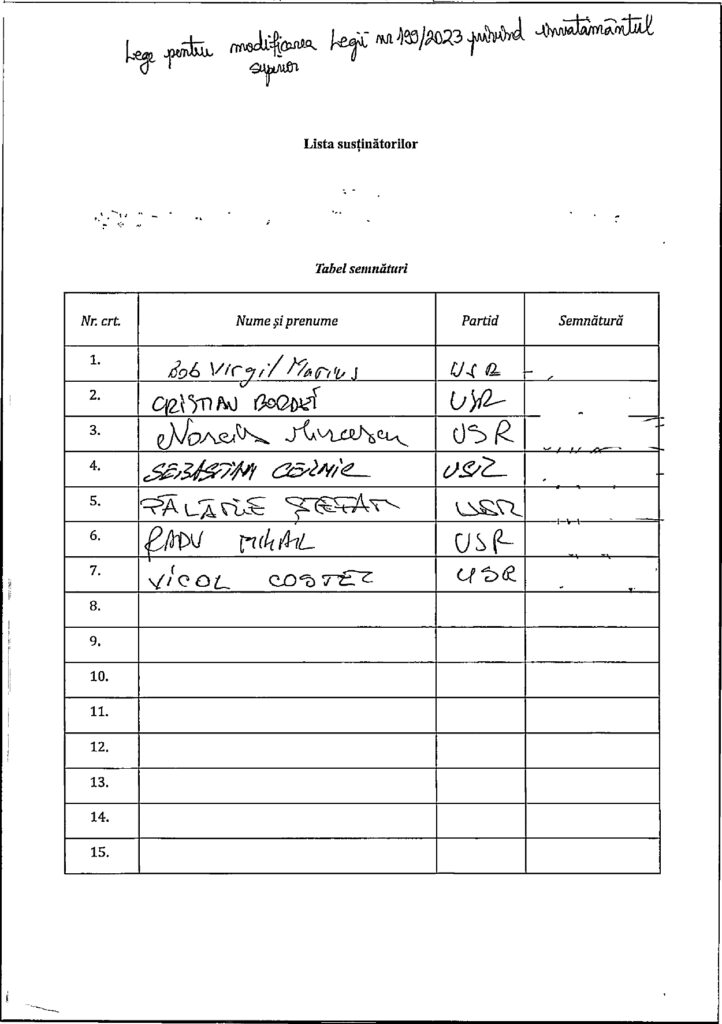 Lege pentru modificarea Legii nr 199/2023 privind învățământul
superior
Lista susținătorilor
Tabel semnături
Nr. crt. Nume și prenume Partid Semnătură
1. Bob Virgil Marius USR
2. CRISTIAN BORDEI USR
3. USR
4. SEBASTIAN CERNIC USR
5. PĂLĂRIE ȘTEFAN USR
6. RADU MIHAIL USR
7. VICOL COSTEL USR
8.
9.
10.
11.
12.
13.
14.
15.